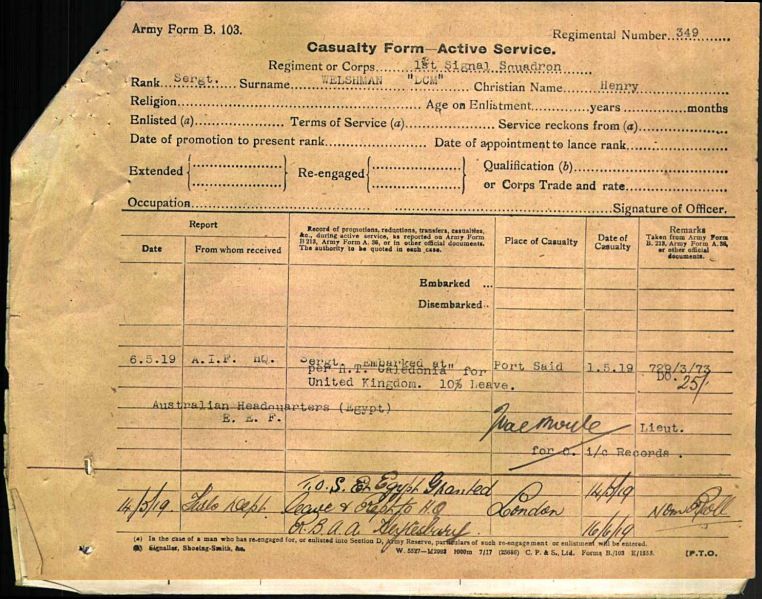 Army Form B. 103.
Regimental Number 349
Casualty Form—Active Service.
Regiment or Corps. 1st Signal Squadron
Rank Sergt. Surname WELSHMAN "DCM" Christian Name Henry
Religion Age on Enlistment years months
Enlisted (a) Terms of Service (a) Service reckons from (a)
Date of promotion to present rank Date of appointment to lance rank
Extended Re-engaged Qualification (b)
or Corps Trade and rate
Occupation Signature of Officer.
Report
Date
From whom received
Record of promotions, reductions, transfers, casualties,
&c., during active service, as reported on Army Form
B 213, Army Form A. 36, or in other official documents.
The authority to be quoted in each case.
Place of Casualty
Date of
Casualty
Remarks
Taken from Army Form
B. 213, Army Form A. 36,
or other official
documents.
Embarked ...
Disembarked
6.5.19 A.I.F. HQ. Sergt. Embarked at Port Said 1.5.19 729/3/73
per A.T. "Caledonia" for DO. 25/
United Kingdom. 10% Leave.
Australian Headquarters (Egypt)
E. E. F.
Lieut.
for O. i/c Records.
T.O.S. Ex Egypt Granted 14/5/19
14/5/19 Leave & Rept to HQ London Nom Roll
16/6/19
(a) In the case of a man who has re-engaged for, or enlisted into Section D, Army Reserve, particulars of such re-engagement or enlistment will be entered.
(b) Signaller, Shoeing-Smith, &c.
C. P. & S., Ltd. Forms B./103 E/1553. [P.T.O.